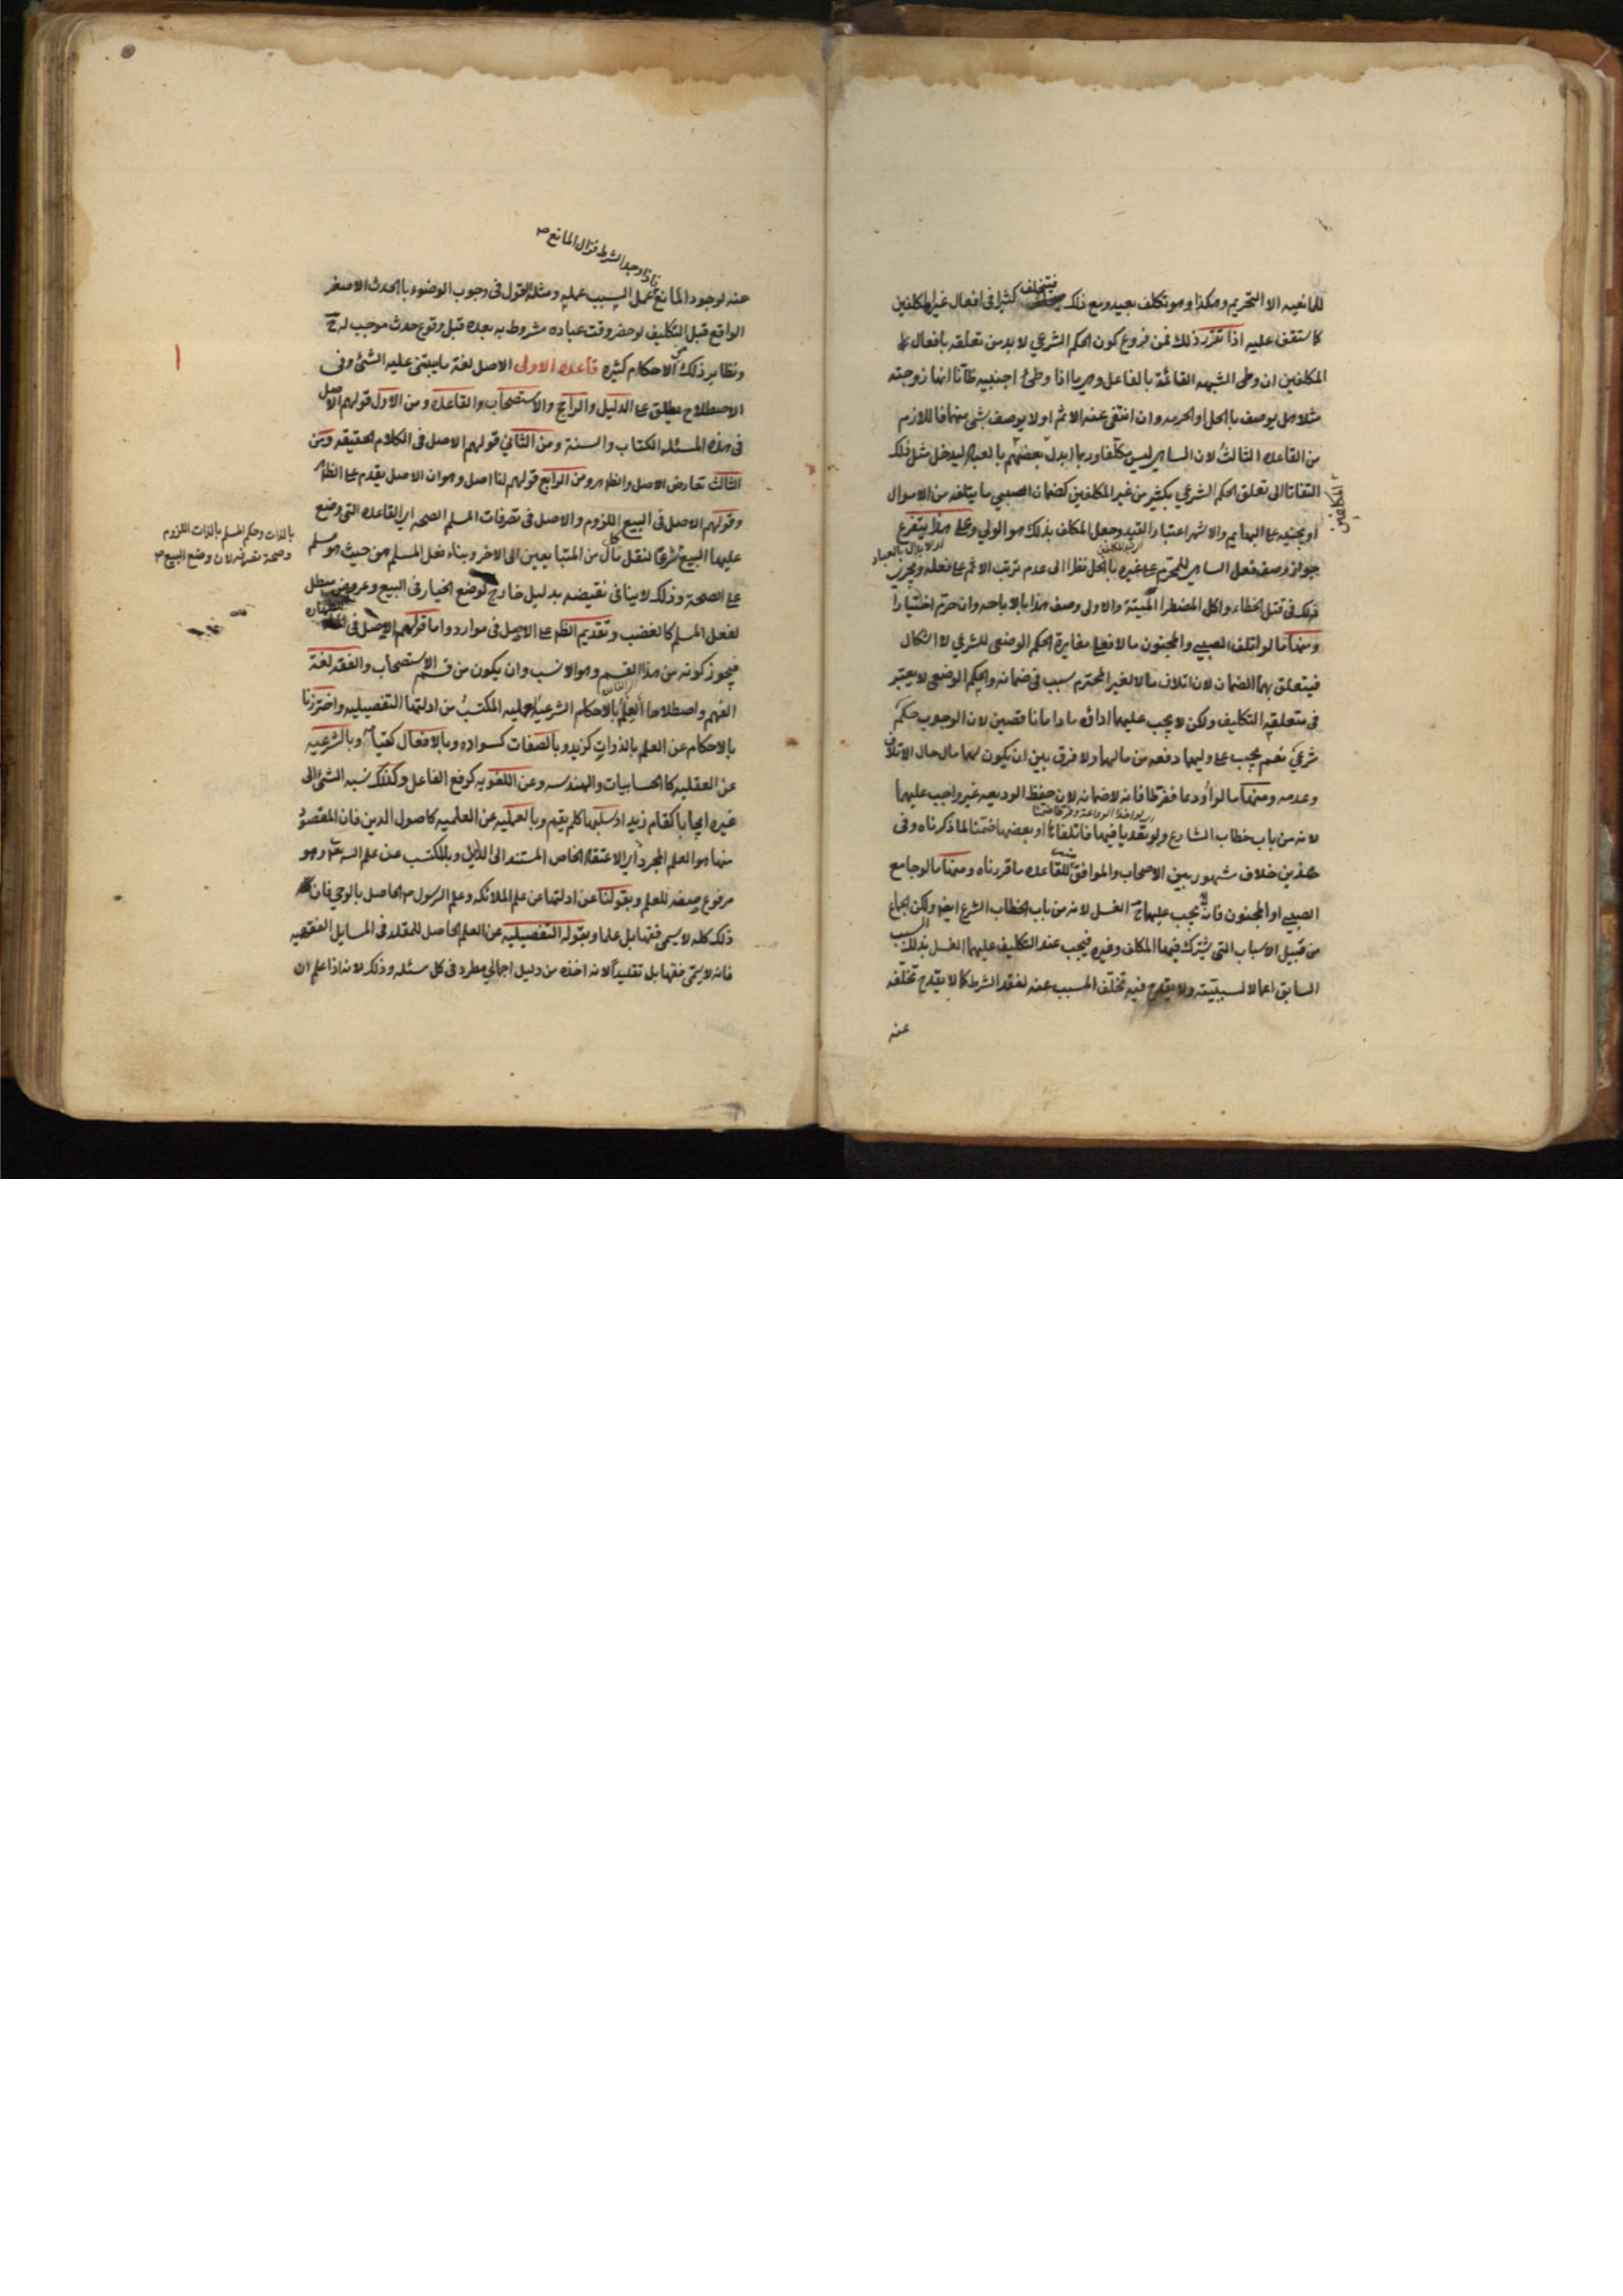 للمانعيه الا التحريم وهكذا وهو تكلف بعيد ومع ذلك فيتخلف كثيرا في افعال غير المكلفين
كما ستقف عليه اذا تقرر ذلك فمن فروع كون الحكم الشرعي لا بد من تعلقه بافعال
المكلفين ان وطى الشبهه القائمة بالفاعل وهي ما اذا وطئ اجنبيه ظانا انها زوجته
مثلا هل يوصف بالحل او الحرمه وان انتفى عنه الاثم او لا يوصف بشئ منهما فاللازم
من القاعده الثالث لان الساهي ليس مكلفا وربما ابدل بعضهم بالعباد ليدخل مثل ذلك
المكلفين
التفاتا الى تعلق الحكم الشرعي بكثير من غير المكلفين كضمان الصبي ما يتلفه من الاموال
او يجنيه على البهايم والاشهر اعتبار القيد وجعل المكلف بذلك هو الولي وعلى هذا يتفرع
جواز وصف فعل الساهي للمحرم على غيره بالحل نظرا الى عدم ترتب الاثم على فعله ويجري
ذلك في قتل الخطاء واكل المضطر الميتة والاولى وصف هذا بالاباحه وان حرم اختيارا
ومنها ما لو اتلف الصبي والمجنون مالا فعلى مغايرة الحكم الوضعي للشرعي لا اشكال
فيتعلق بهما الضمان لان اتلاف مال الغير المحترم سبب في ضمانه والحكم الوضعي لا يعتبر
في متعلقه التكليف ولكن لا يجب عليهما اداؤه ما داما ناقصين لان الوجوب حكم
شرعي نعم يجب على وليهما دفعه من مالهما ولا فرق بين ان يكون لهما مال حال الاتلاف
وعدمه ومنها ما لو اودعا ففرطا فانه لا ضمانه لان حفظ الوديعه غير واجب عليهما
لانه من باب خطاب الشارع ولو تعديا فيها فاتلفاها او بعضها ضمنا لما ذكرناه وفي
هذين خلاف مشهور بين الاصحاب والموافق للقاعده ما قررناه ومنها ما لو جامع
الصبي او المجنون فانه يجب عليهما ح الغسل لانه من باب الخطاب الشرع ايضا ولكن الجماع
من قبيل الاسباب التي يشترك فيها المكلف وغيره فيجب عند التكليف عليهما الغسل بذلك السبب
السابق اعمالا لسببيته ولا يقدح فيه تخلف المسبب عنه لفقد الشرط كما لا يقدح تخلفه
عنه
فاذا وجد الشرط فزال المانع
عنه لوجود المانع عمل السبب عمله ومثله القول في وجوب الوضوء بالحدث الاصغر
الواقع قبل التكليف لو حضر وقت عباده مشروط به بعده قبل وقوع حدث موجب له ح
ونظاير ذلك من الاحكام كثيره قاعده الاولى الاصل لغة ما يبتنى عليه الشئ وفي
الاصطلاح يطلق على الدليل والراجح والاستصحاب والقاعده ومن الاول قولهم الاصل
في هذه المسئله الكتاب والسنة ومن الثاني قولهم الاصل في الكلام الحقيقه ومن
الثالث تعارض الاصل والظاهر ومن الرابع قولهم لنا اصل وهو ان الاصل يقدم على الظاهر
وقولهم الاصل في البيع اللزوم والاصل في تصرفات المسلم الصحه اي القاعده التي وضع
عليها البيع شرعا لنقل مال كل من المتبايعين الى الاخر وبناء فعل المسلم من حيث هو مسلم
بالذات وحكم المسلم بالذات اللزوم
وصحة تصرفه لان وضع البيع
على الصحة وذلك لا ينافي نقيضه بدليل خارج كوضع الخيار في البيع وعروض مبطل
لفعل المسلم كالغصب وتقديم الظاهر على الاصل في موارد واما قولهم الاصل في الطهاره
فيجوز كونه من هذا القسم وهو الانسب وان يكون من قسم الاستصحاب والفقه لغة
الفهم واصطلاحا العلم بالاحكام الشرعيه العمليه المكتسب من ادلتها التفصيليه واحترزنا
بالاحكام عن العلم بالذوات كزيد وبالصفات كسواده وبالافعال كقيامه وبالشرعيه
عن العقليه كالحسابيات والهندسه وعن اللغويه كرفع الفاعل وكذلك نسبه الشئ الى
غيره ايجابا كقام زيد او سلبا كلم يقم وبالعمليه عن العلميه كاصول الدين فان المقصود
منها هو العلم المجرد اي الاعتقاد الخاص المستند الى الدليل وبالمكتسب عن علم الله تعالى وهو
مرفوع صفه للعلم وبقولنا عن ادلتها عن علم الملائكه وعلم الرسول الحاصل بالوحي فان
ذلك كله لا يسمى فقها بل علما وبقوله التفصيليه عن العلم الحاصل للمقلد في المسايل الفقهيه
فانه لا يسمى فقها بل تقليدا لانه اخذه من دليل اجمالي مطرد في كل مسئله وذلك لانه اذا علم ان